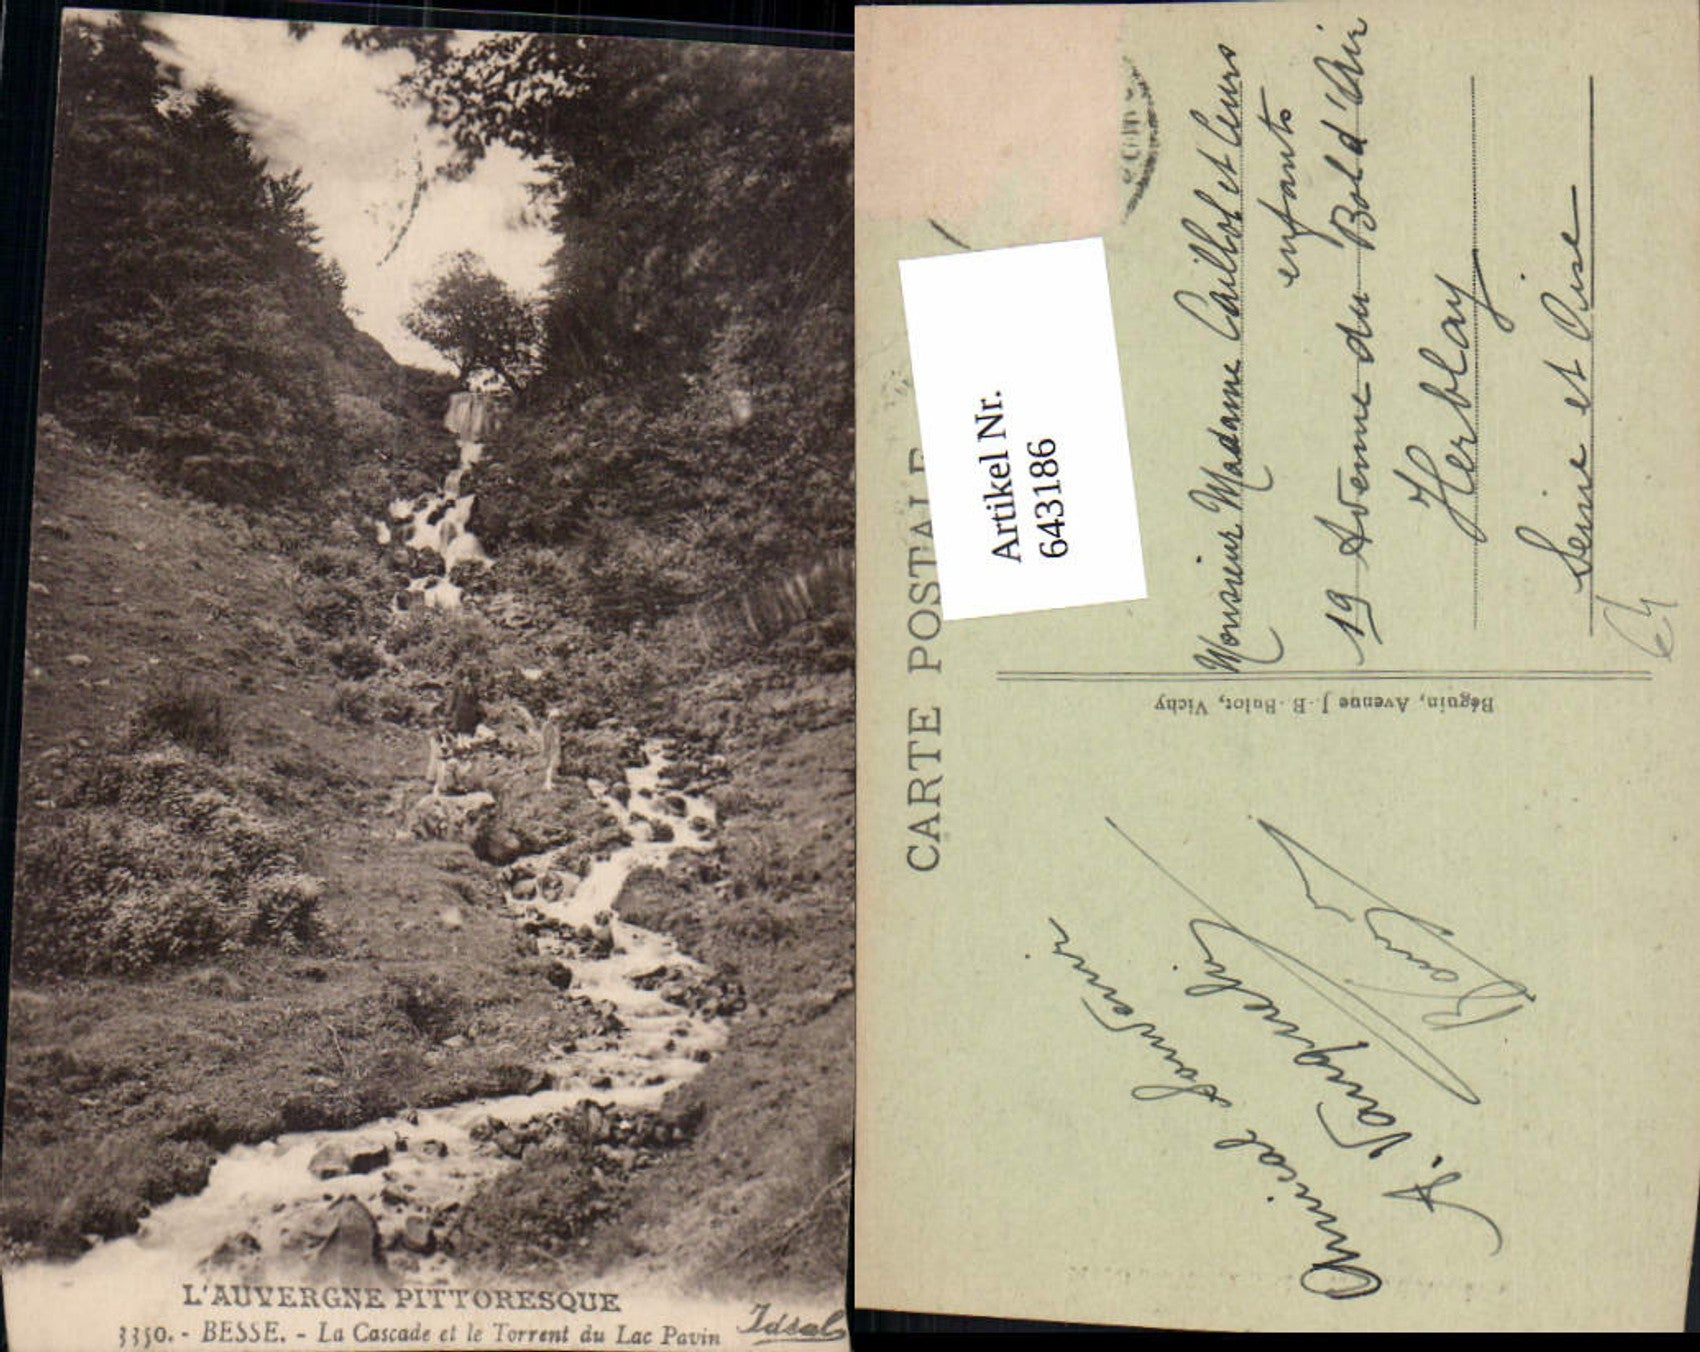 L'AUVERGNE PITTORESQUE
3350. - BESSE. - La Cascade et le Torrent du Lac Pavin
CARTE POSTALE
Artikel Nr.
6431186
Béguin, Avenue J.-B. Bulot, Vichy
Monsieur Madame Caillot et leurs
enfants
19 Avenue du Bold d'Air
Herblay
Seine et Oise
Amical Souvenir